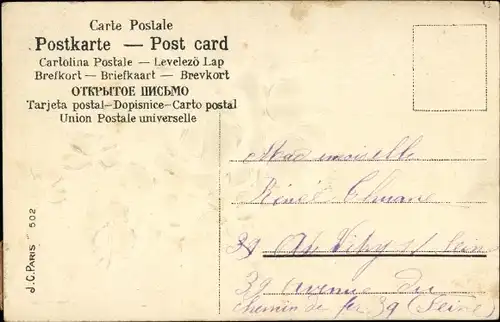 Carte Postale
Postkarte — Post card
Cartolina Postale — Levelező Lap
Brefkort — Briefkaart — Brevkort
ОТКРЫТОЕ ПИСЬМО
Tarjeta postal—Dopisnice—Carto postal
Union Postale universelle
J.C. PARIS 502
Mademoiselle
Renée
39 Vitry s/ Seine
39 avenue du
chemin de fer 39 (Seine)